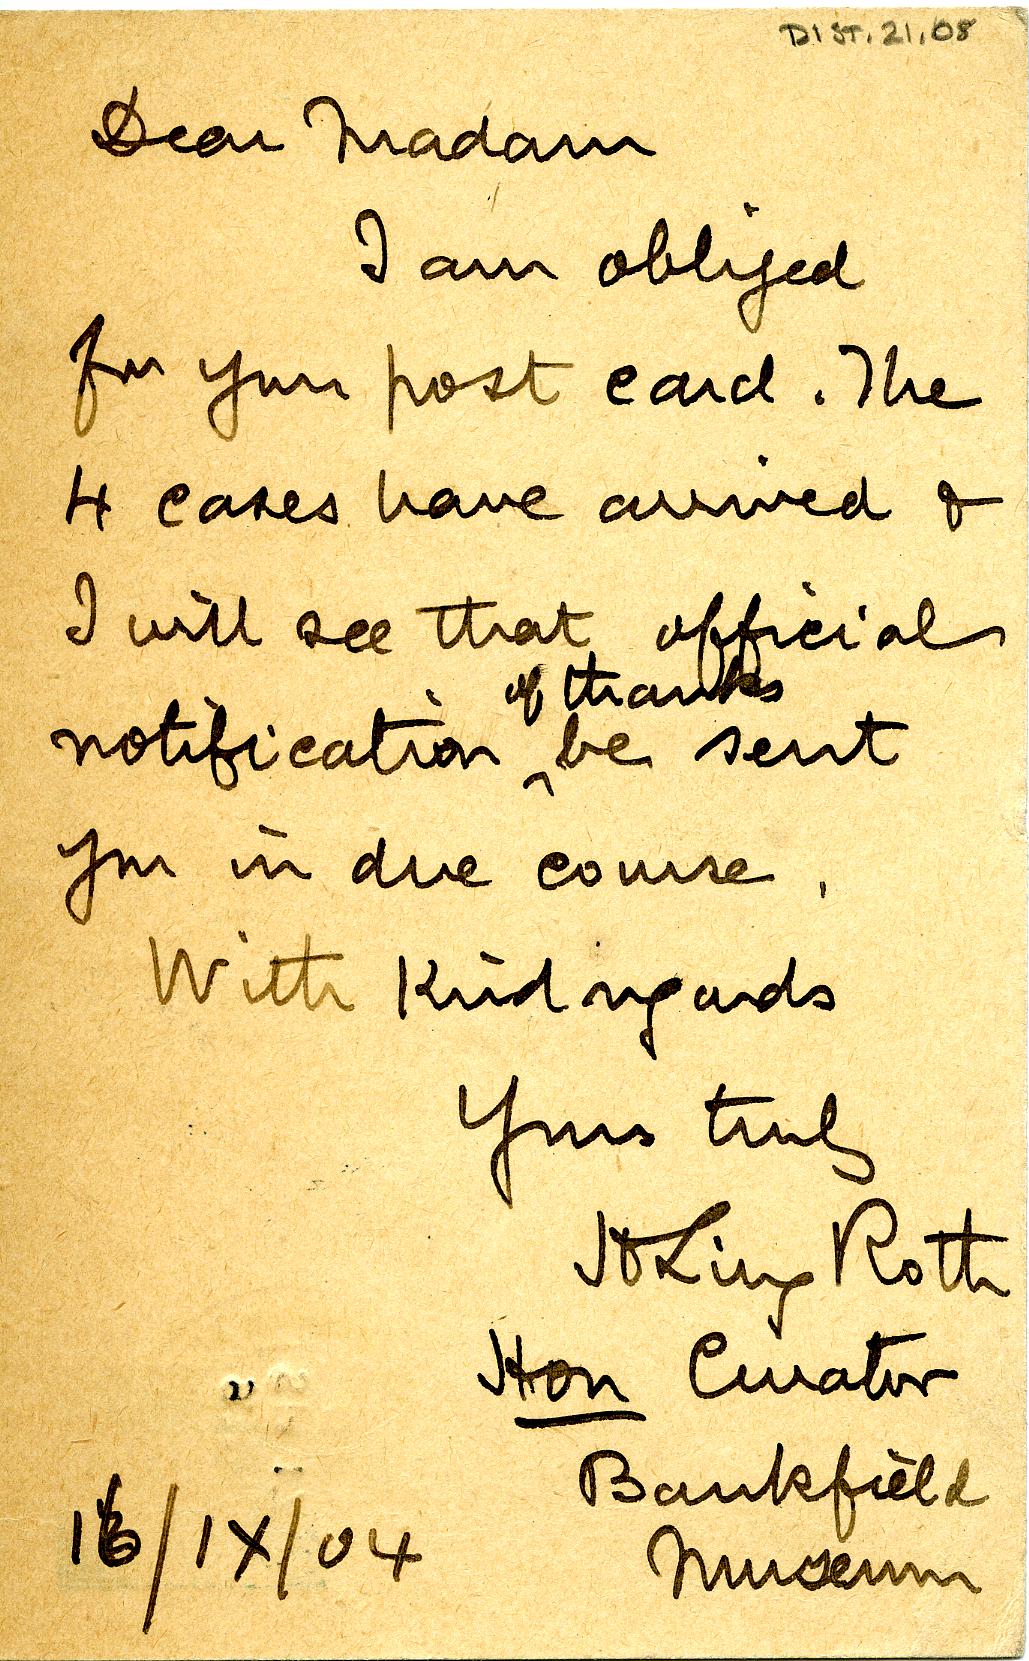 DIST. 21.08
Dear Madam
I am obliged
for your post card. The
4 cases have arrived &
I will see that official
of thanks
notification ^ be sent
you in due course.
With Kind regards
Yours truly
H Ling Roth
Hon Curator
Bankfield
Museum
16/IX/04